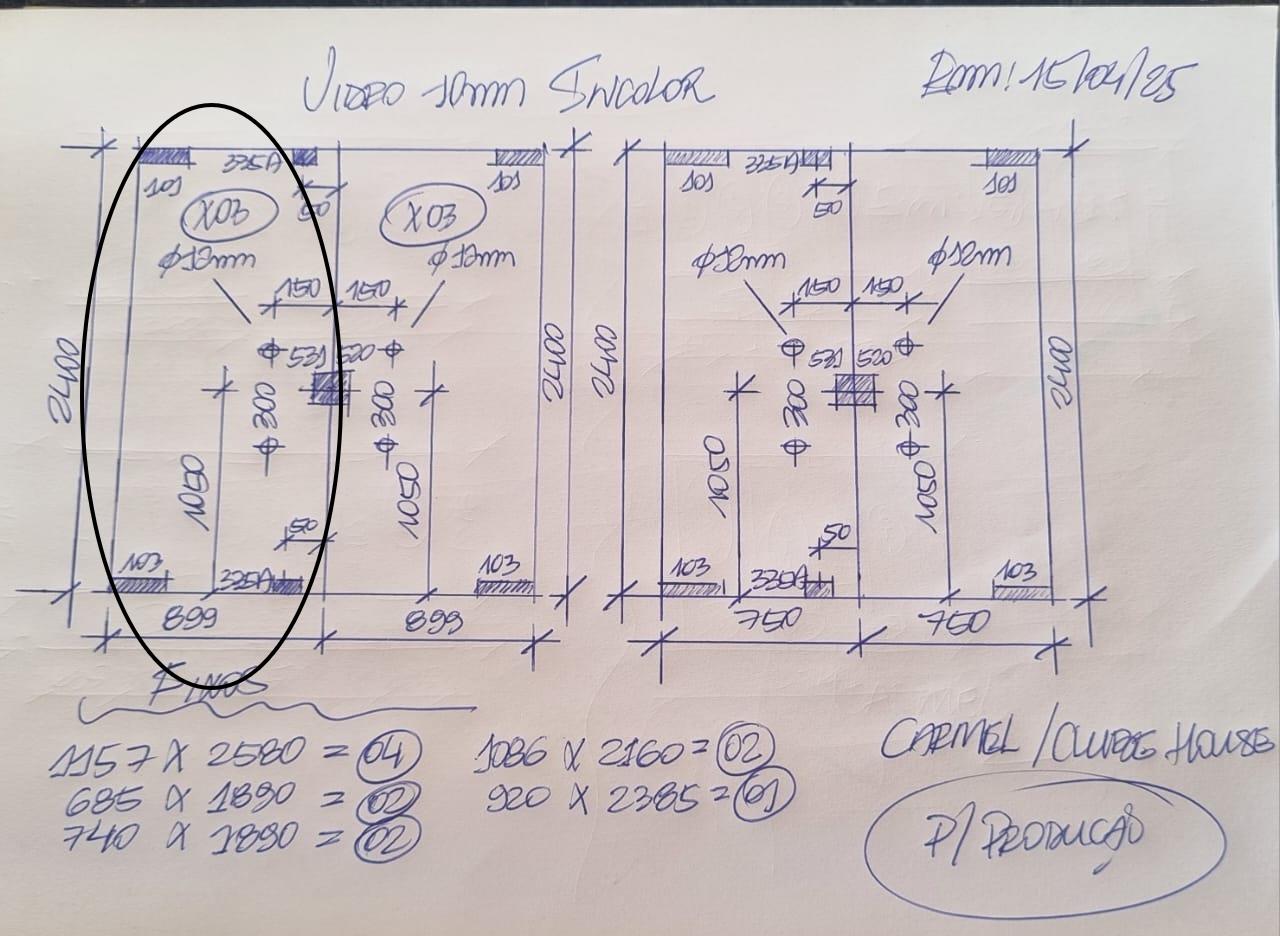 VIDRO 10mm INCOLOR
15/04/25
101 335A 101
50
X03 X03
φ12mm φ12mm
150 150
2400 531 520 2400
300 300
1050 1050
50
103 335A 103
899 899
101 335A 101
50
φ12mm φ12mm
150 150
2400 531 520 2400
300 300
1050 1050
50
103 335A 103
750 750
FIXOS
1157 X 2580 = 04
685 X 1890 = 02
740 X 1890 = 02
1086 X 2160 = 02
920 X 2385 = 01
CARMEL / CLUBE HOUSE
P/ PRODUÇÃO